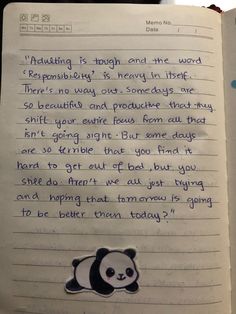 Memo No.
Mo Tu We Th Fr Sa Su
Date / /
"Adulting is tough and the word
'Responsibility' is heavy in itself.
There's no way out. Somedays are
so beautiful and productive that they
shift your entire focus from all that
isn't going right. But some days
are so terrible that you find it
hard to get out of bed, but you
still do. Aren't we all just trying
and hoping that tomorrow is going
to be better than today?"